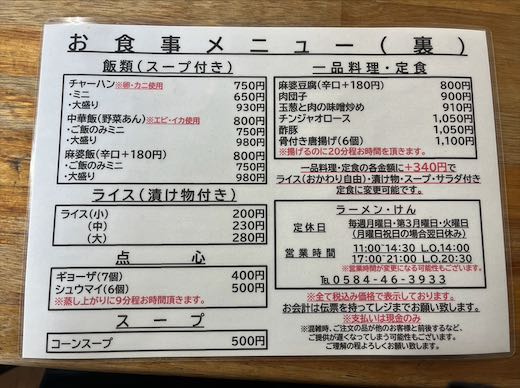 お食事メニュー(裏)
飯類(スープ付き)
チャーハン※卵・カニ使用 750円
・ミニ 650円
・大盛り 930円
中華飯(野菜あん)※エビ・イカ使用 800円
・ご飯のみミニ 750円
・大盛り 980円
麻婆飯(辛口+180円) 800円
・ご飯のみミニ 750円
・大盛り 980円
ライス(漬け物付き)
ライス(小) 200円
(中) 230円
(大) 280円
点心
ギョーザ(7個) 400円
シュウマイ(6個) 500円
※蒸し上がりに9分程お時間頂きます。
スープ
コーンスープ 500円
一品料理・定食
麻婆豆腐(辛口+180円) 800円
肉団子 900円
玉葱と肉の味噌炒め 910円
チンジャオロース 1,050円
酢豚 1,050円
骨付き唐揚げ(6個) 1,100円
※揚げるのに20分程お時間を頂きます。
一品料理・定食の各金額に+340円で
ライス(おかわり自由)・漬け物・スープ・サラダ付き
定食に変更可能です。
ラーメン・けん
定休日 毎週月曜日・第3月曜日・火曜日
(月曜日祝日の場合翌日休み)
営業時間 11:00~14:30 L.O.14:00
17:00~21:00 L.O.20:30
※営業時間が変更になる可能性もございます。
℡0584-46-3933
※全て税込み価格で表示しております。
お会計は伝票を持ってレジまでお願い致します。
※支払いは現金のみ
※混雑時、ご注文の品が他のお客様と前後するなど、
ご提供が遅くなってしまう可能性もございます。
ご理解の程よろしくお願い致します。